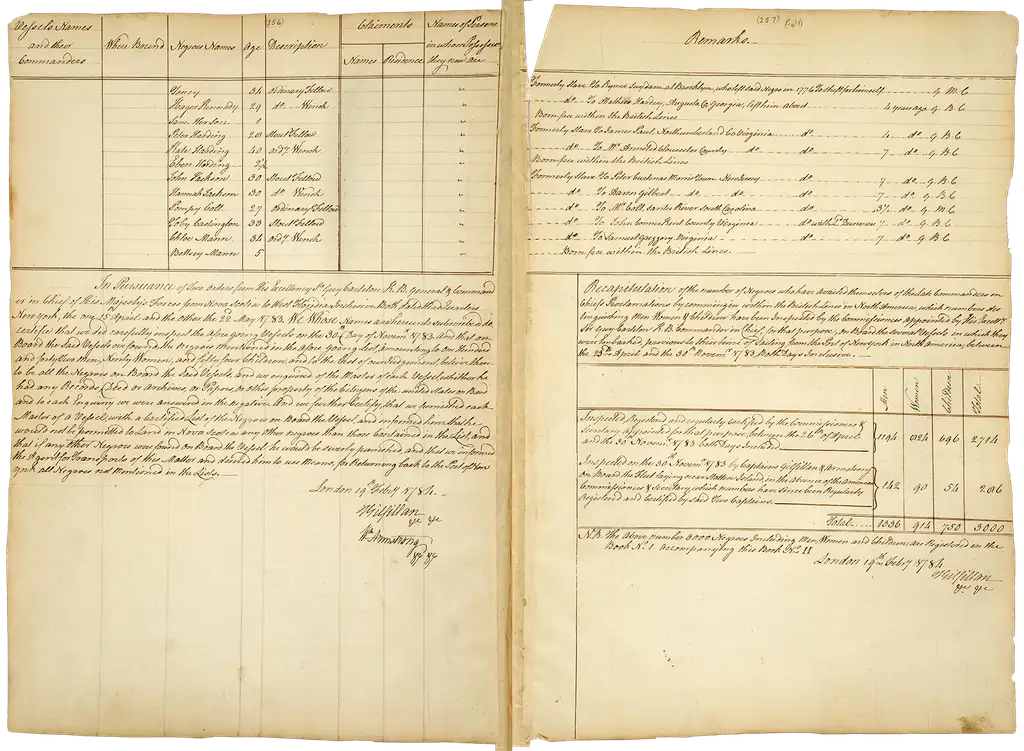 (156)
Vessels Names and their Commanders
Where Bound
Negroes Names
Age
Description
Claimants
Names
Residence
Names of Persons in whose Possession they now are
34 ordinary Fellow "
Kennady 29 do Wench "
Sam Herson 1 "
Peter Harding 20 Stout Fellow "
Kate Harding 40 ordy Wench "
Eben Harding 2½ "
John Jackson 30 Stout Fellow "
Hannah Jackson 30 do Wench "
Pompey Coll 27 ordinary Fellow "
Toby Castington 33 Stout Fellow "
Chloe Mann 34 ordy Wench "
Bettsey Mann 5 "
In Pursuance of Two orders from His Excellency Sr Guy Carleton K.B. General & Command
er in Chief of His Majesty's Forces from Nova Scotia to West Florida Inclusive Both dated Head Quarters
New York, the one 15 April and the other the 22d May 1783. We Whose Names are hereunto subscribed do,
certefee that we did carefully inspect the afore going Vessels on the 30th Day of Novemr 1783 And that on
Board the Said Vessels we found the Negroes mentioned in the afore going List, amounting to One Hundred
and forty two Men, Ninety Women, and fifty four Children and to the Best of our Judgement believe them
to be all the Negroes on Board the Said Vessels, and we enquired of the Master of each Vessel whether he
had any Records, Deed or Archives, or Papers, or other property of the Citizens of the United States on Board
and to each Enquiry we were answered in the negative. And we further Certify, that we furnished each
Master of a Vessel, with a Certified List of the Negroes on Board the Vessel and informed him that he
would not be permitted to Land in Nova Scotia any other negroes than those contained in the List, and
that if any other Negroes were found on Board the Vessel he would be severly punished, and that we informed
the Agent for Transports of this Matter and desired him to use Means, for Returning back to the Port of New
York all Negroes not Mentioned in the Lists.
London 19th Feby 1784.
TGilfillan
Wm Armstrong
(157)
Remarks.
Formerly Slave to Rymer Suydam at Brooklyn, who left said Negro in 1776 to shift for himself G M C
do To Mathew Hardey, Augusta Co. Georgia, left him about 4 years ago G B C
Born free within the British Lines
Formerly Slave to James Paul, Northumberland Co Virginia do 4 do G B C
do To Mr Armsted Gloucester County do do 7 do G B C
Born free within the British Lines
Formerly Slave to Peter Cushman Morris Town New Jersey do 7 do G B C
do To Aaron Gilbert do do do 7 do G B C
do To Mr Coll, Santee River South Carolina do 3½ do G M C
do To John Conner Kent County Virginia do with Ld Dunmore 7 do G B C
do To Samuel Virginia do 7 do G B C
Born free within the British Lines.
Recapitulation of the number of Negroes who have availed themselves of the late Commanders in
Chiefs Proclamations by comming in within the British Lines in North America, which numbers dis
tinguishing Men Women & Children have been Inspected by the Commissioners appointed by His Excelly
Sir Guy Carleton K.B Commander in Chief, for that purpose, on Board the several Vessels in which they
were embarked, previous to their time of Sailing from the Port of New York in North America, between
the 23d April and the 30th Novemr 1783. Both Days Inclusive.
Men Women Children Total
Inspected, Registered, and regularly Certified by the Commissioners &
Secretary Appointed for that purpose, between the 26th of April
and the 30 Novemr 1783 both Days Included 1194 824 696 2714
Inspected on the 30th Novemr 1783 by Captains Gilfillan & Armstrong
on Board the Fleet laying near Statten Island, in the absence of the American
Commissioners & Secretary, which numbers have since been Regularly
Registered and Certified by Said Two Captains. 142 90 54 286
Total 1336 914 750 3000
N.B. The above number 3000 Negroes Including Men, Women and Children, are Registered in the
Book No 1 accompanying this Book No II
London 19th Feby 1784
TGilfillan